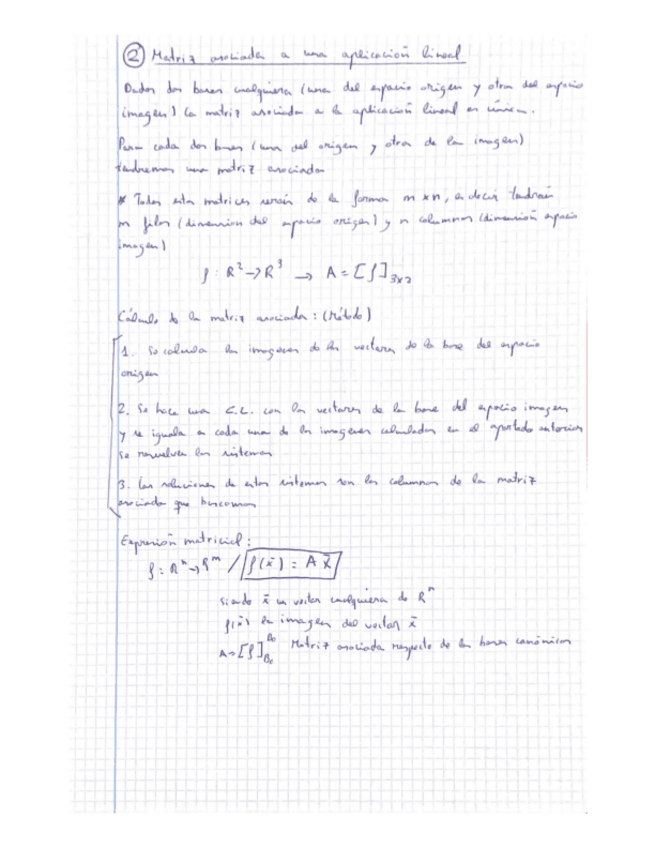 ② Matriz asociada a una aplicación lineal
Dadas dos bases cualquiera (una del espacio origen y otra del espacio
imagen) la matriz asociada a la aplicación lineal es única.
Para cada dos bases (una del origen y otra de la imagen)
tendremos una matriz asociada
* Todas estas matrices serán de la forma m x n, es decir tendrán
m filas (dimension del espacio origen) y n columnas (dimensión espacio
imagen)
f : R² → R³ → A = [f]₃ₓ₂
Cálculo de la matriz asociada : (Método)
1. Se calcula las imagenes de los vectores de la base del espacio
origen
2. Se hace una C.L. con los vectores de la base del espacio imagen
y se iguala a cada una de las imagenes calculadas en el apartado anterior
se resuelven los sistemas
3. Las soluciones de estos sistemas son las columnas de la matriz
asociada que buscamos
Expresión matricial :
f : Rⁿ → Rᵐ / f(x̄) = A x̄
siendo x̄ un vector cualquiera de Rⁿ
f(x̄) la imagen del vector x̄
A = [f] Matriz asociada respecto de las bases canónicas